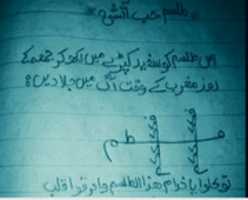 طلسم حب آتشی
اس طلسم کو سفید کپڑے میں لکھ کر جمعہ کے
روز مغرب کے وقت آگ میں جلا دیں:
م ط
توکلوا یا خدام هذا الطلسم واحرقوا قلب